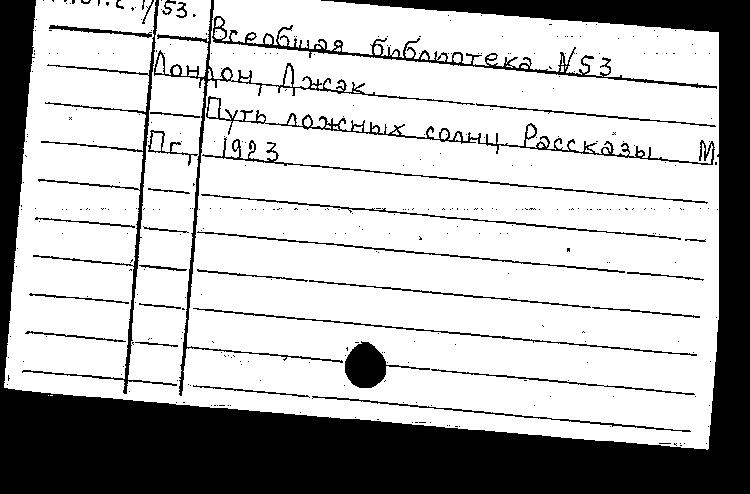 53.
Всеобщая библиотека N53.
Лондон, Джэк.
Путь ложных солнц. Рассказы. М.
Пг, 1923